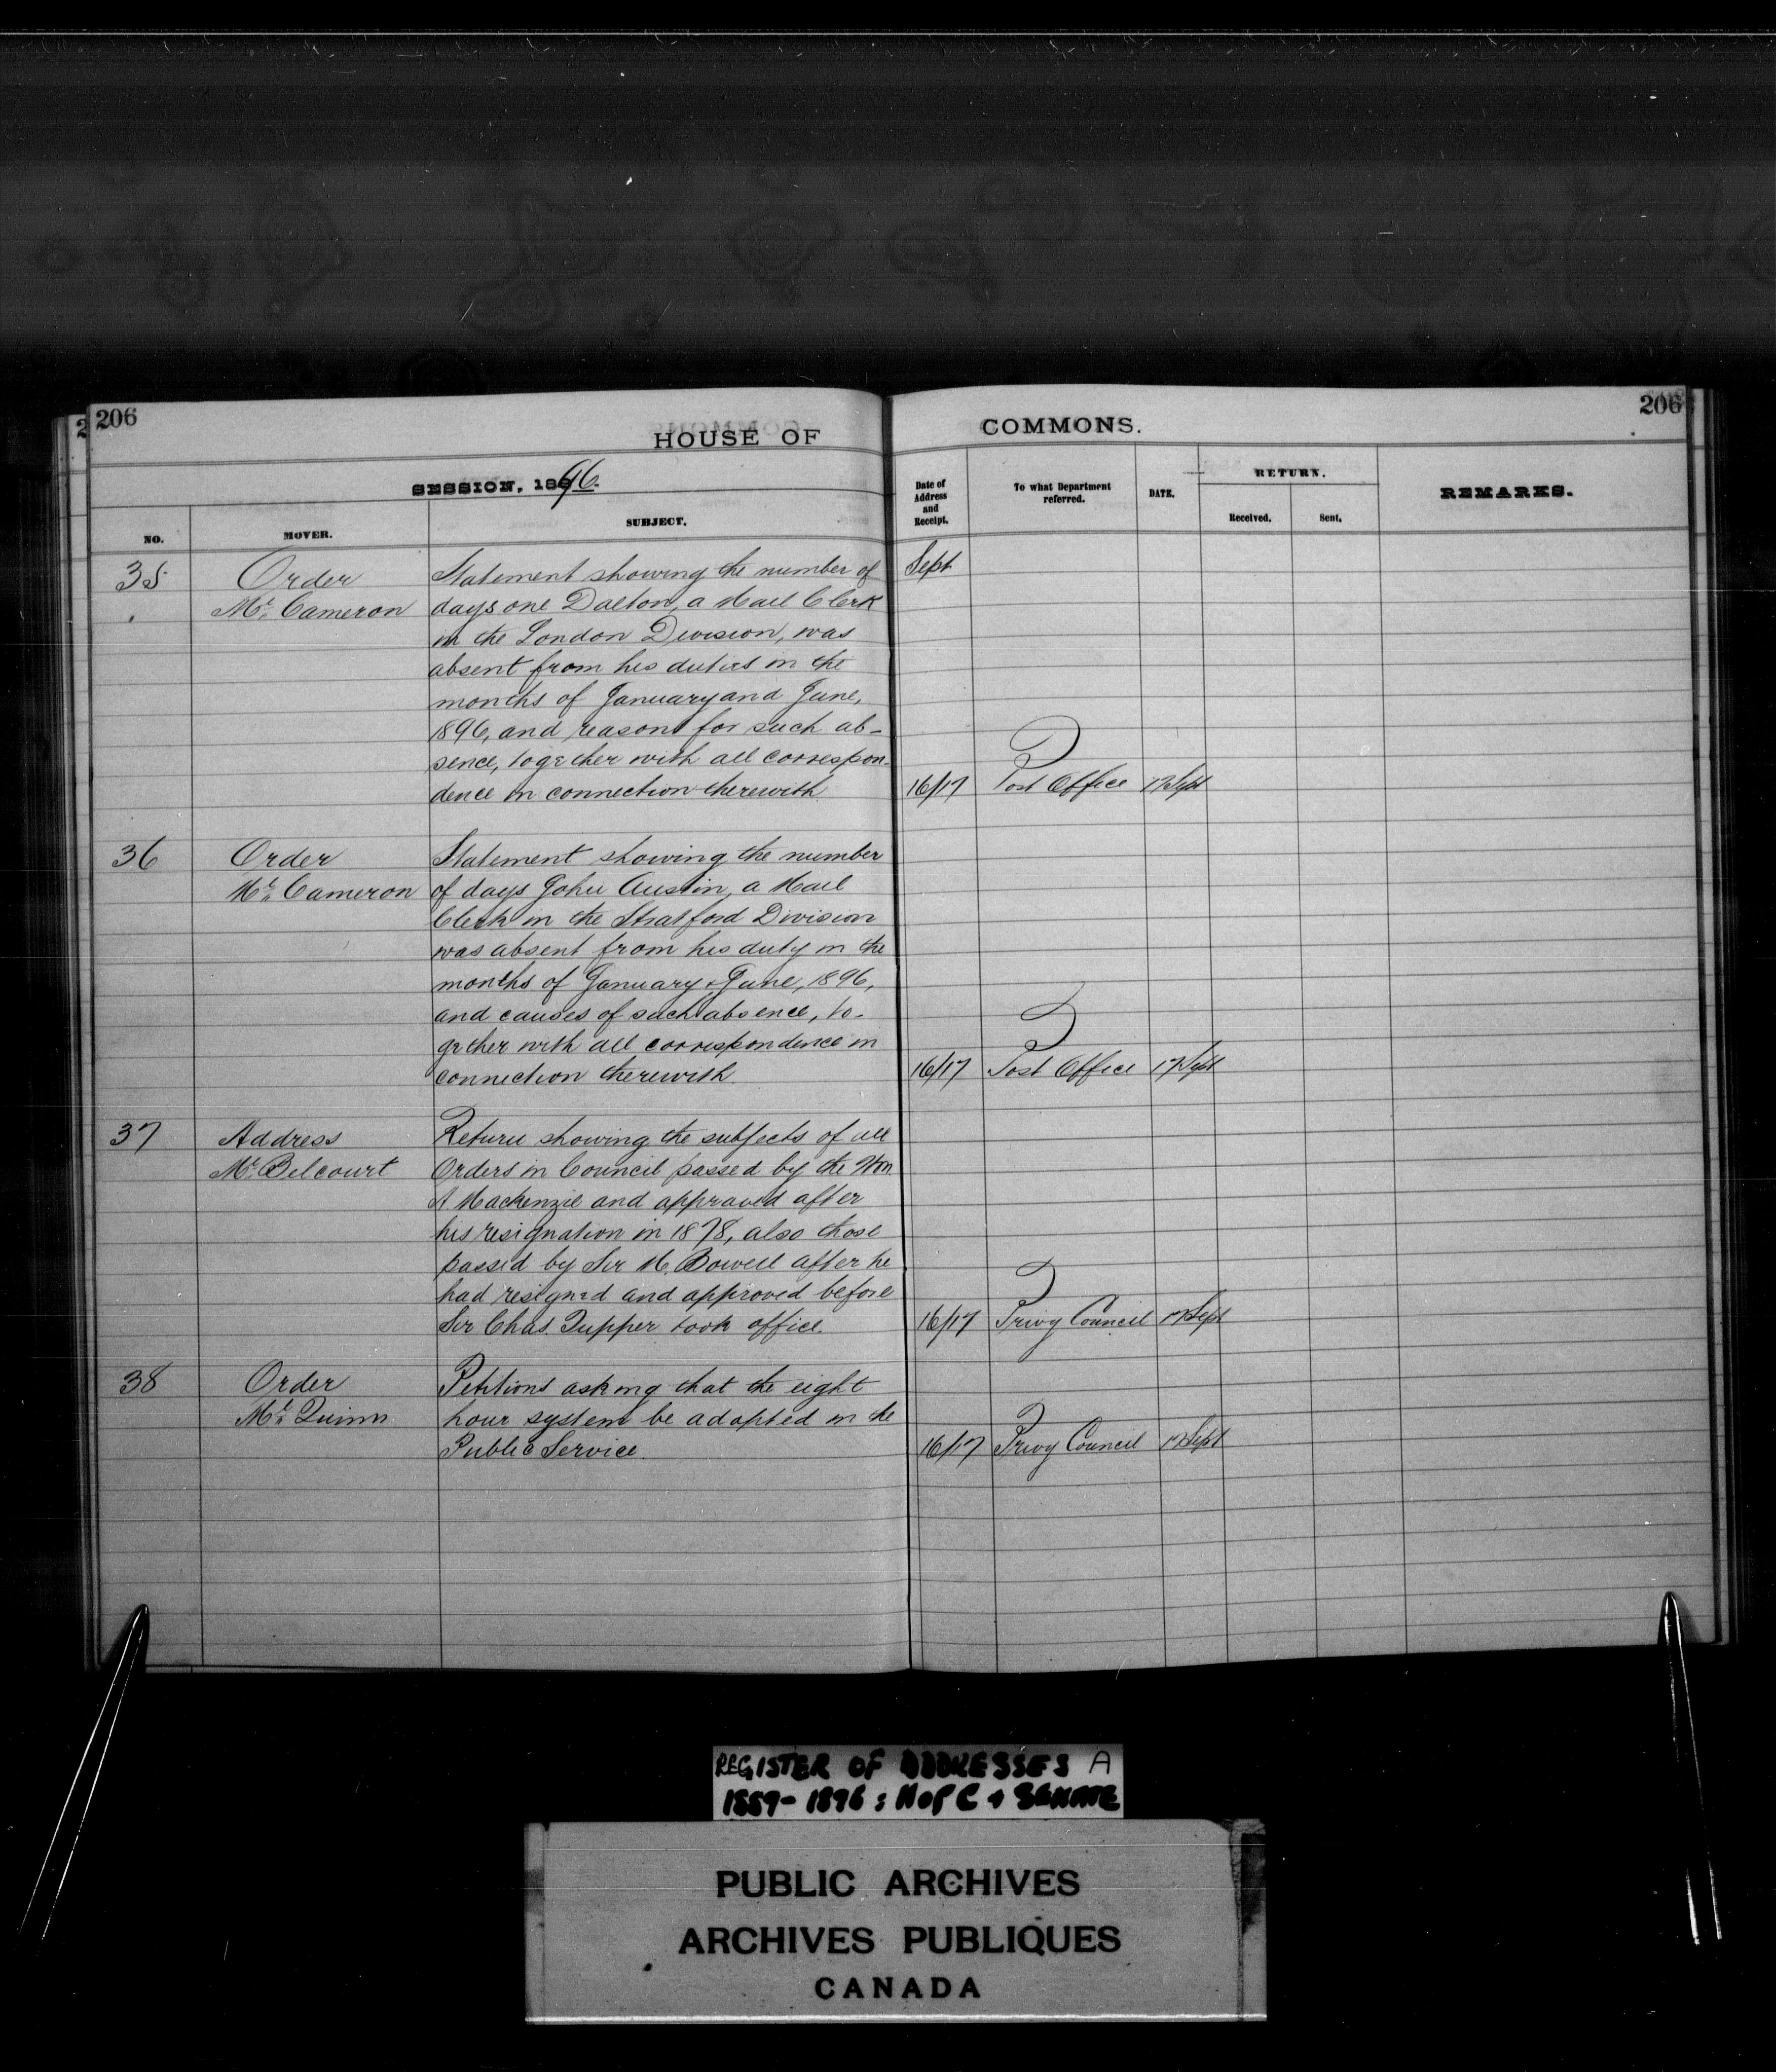 206
HOUSE OF
COMMONS.
206
SESSION, 1896.
NO.
MOVER.
SUBJECT.
Date of
Address
and
Receipt.
To what Department
referred.
DATE.
RETURN.
Received.
Sent.
REMARKS.
35 Order Statement showing the number of Sept
Mr. Cameron days one Dalton, a Mail Clerk
in the London Division, was
absent from his duties in the
months of January and June,
1896, and reasons for such ab-
sence, together with all correspon-
dence in connection therewith 16/17 Post Office 17 Sept
36 Order Statement showing the number
Mr. Cameron of days John Austin, a Mail
Clerk in the Stratford Division
was absent from his duty in the
months of January & June, 1896,
and causes of such absence, to-
gether with all correspondence in
connection therewith. 16/17 Post Office 17 Sept
37 Address Return showing the subjects of all
Mr. Belcourt Orders in Council passed by the Hon.
A Mackenzie and approved after
his resignation in 1878, also those
passed by Sir M. Bowell after he
had resigned and approved before
Sir Chas. Tupper took office. 16/17 Privy Council 17 Sept
38 Order Petitions asking that the eight
Mr. Quinn hour system be adopted in the
Public Service. 16/17 Privy Council 17 Sept
REGISTER OF ADDRESSES A
1889-1896: H of C + SENATE
PUBLIC ARCHIVES
ARCHIVES PUBLIQUES
CANADA